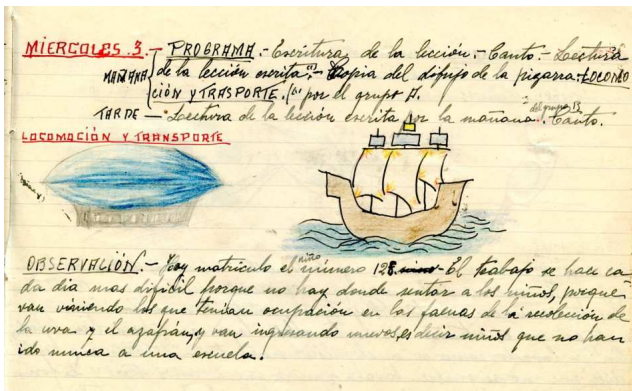 MIERCOLES 3.- PROGRAMA.- Escritura de la lección.- Canto.- Lectura
MAÑANA de la lección escrita (1).- Copia del dibujo de la pizarra: LOCOMO
CIÓN Y TRASPORTE. (1) por el grupo A.
TARDE - Lectura de la lección escrita por la mañana. Canto.
del grupo B
LOCOMOCIÓN Y TRANSPORTE
OBSERVACIÓN.- Hoy matriculo el niño número 128. El trabajo se hace ca
da dia mas dificil porque no hay donde sentar a los niños, porque
van viniendo los que tenian ocupación en las faenas de la recolección de
la uva y el azafrán, y van ingresando nuevos, es decir niños que no han
ido nunca a una escuela.